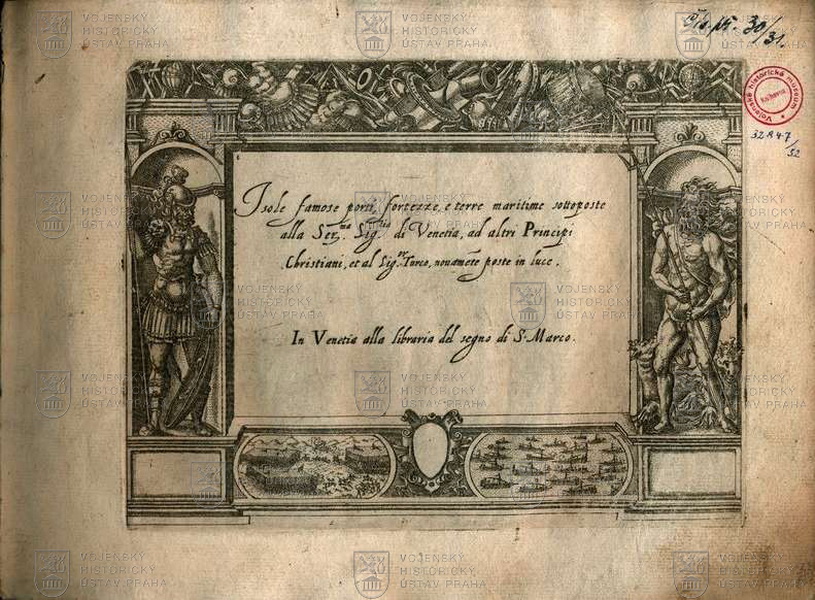 Čís. př. 30/31.
Vojenské historické museum
Knihovna
32847/52
Isole famose porti, fortezze, e terre maritime sottoposte
alla Ser.ma Sig.ria di Venetia, ad altri Principi
Christiani, et al Sig.or Turco, novamēte poste in luce.
In Venetia alla libraria del segno di S. Marco.
VOJENSKÝ
HISTORICKÝ
ÚSTAV PRAHA